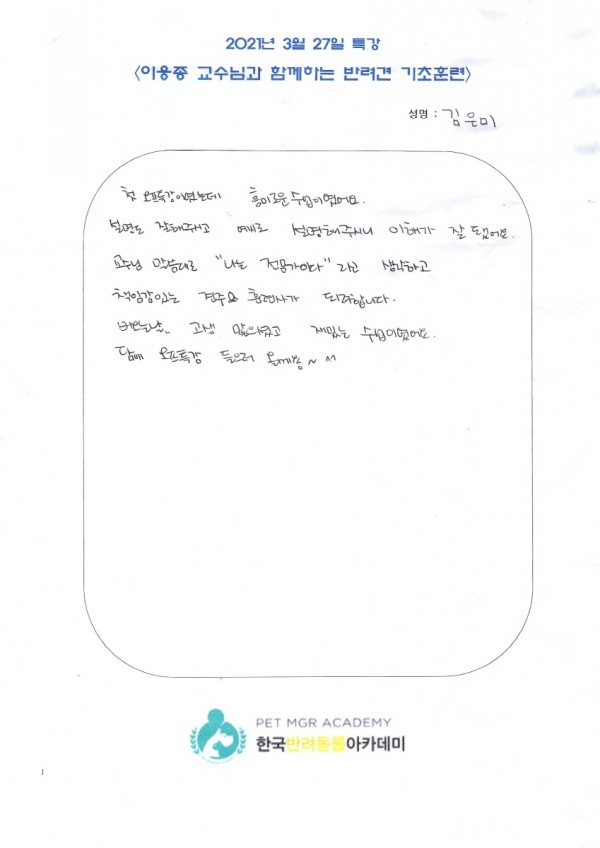 2021년 3월 27일 특강
<이웅종 교수님과 함께하는 반려견 기초훈련>
성명 : 김은미
첫 오프특강이었는데 흥미로운 수업이였어요.
설명도 잘해주시고 예시로 설명해주시니 이해가 잘 됐어요.
교수님 말씀대로 "나는 전문가이다" 라고 생각하고
책임감있는 견주와 훈련사가 되려합니다.
비오는날, 고생 많으셨고 재밌는 수업이였어요.
담에 오프특강 들으러 올게용~ ^^
PET MGR ACADEMY
한국반려동물아카데미